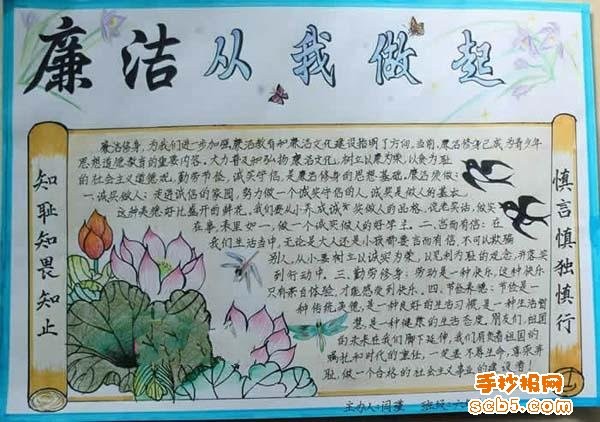 廉洁从我做起
知耻知畏知止
廉洁修身,为我们进一步加强廉洁教育和廉洁文化建设指明了方向。当前,廉洁修身已成为青少年
思想道德教育的重要内容。大力普及和弘扬廉洁文化,树立以廉为荣,以贪为耻
的社会主义道德观,勤劳节俭,诚实守信,是廉洁修身的思想基础。廉洁使做:
一、诚实做人:走进诚信的家园,努力做一个诚实守信的人,诚实是做人的基本。
这种美德好比盛开的鲜花,我们要从小养成诚实做人的品格,说老实话,做实
在事,表里如一,做一个诚实做人的好学生。二、当而有信:在
我们生活当中,无论是大人还是小孩都要言而有信,不可以欺骗
别人,从小要树立以诚实为荣,以见利为耻的观念,并落实
到行动中。三、勤劳修身:劳动是一种快乐,这种快乐
只有亲自体验,才能感受到快乐。四、节俭养德:节俭是一
种传统美德,是一种良好的生活习惯,是一种生活智
慧,是一种健康的生活态度。朋友们,祖国
的未来在我们脚下延伸,我们有负着祖国的
嘱托和时代的重任,一定要不辱生命,尊荣弃
耻,做一个合格的社会主义事业的建设者!
慎言慎独慎行
主办人:闫
班级:六
手抄报网
scb5.com